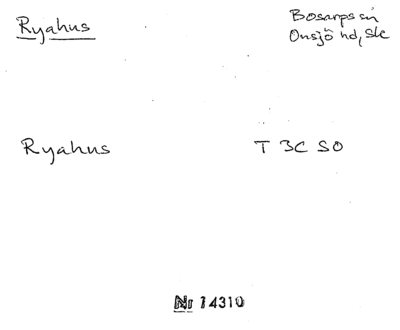 Ryahus
Bosarps sn
Onsjö hd, Sk
Ryahus
T 3C SO
Nr 14310